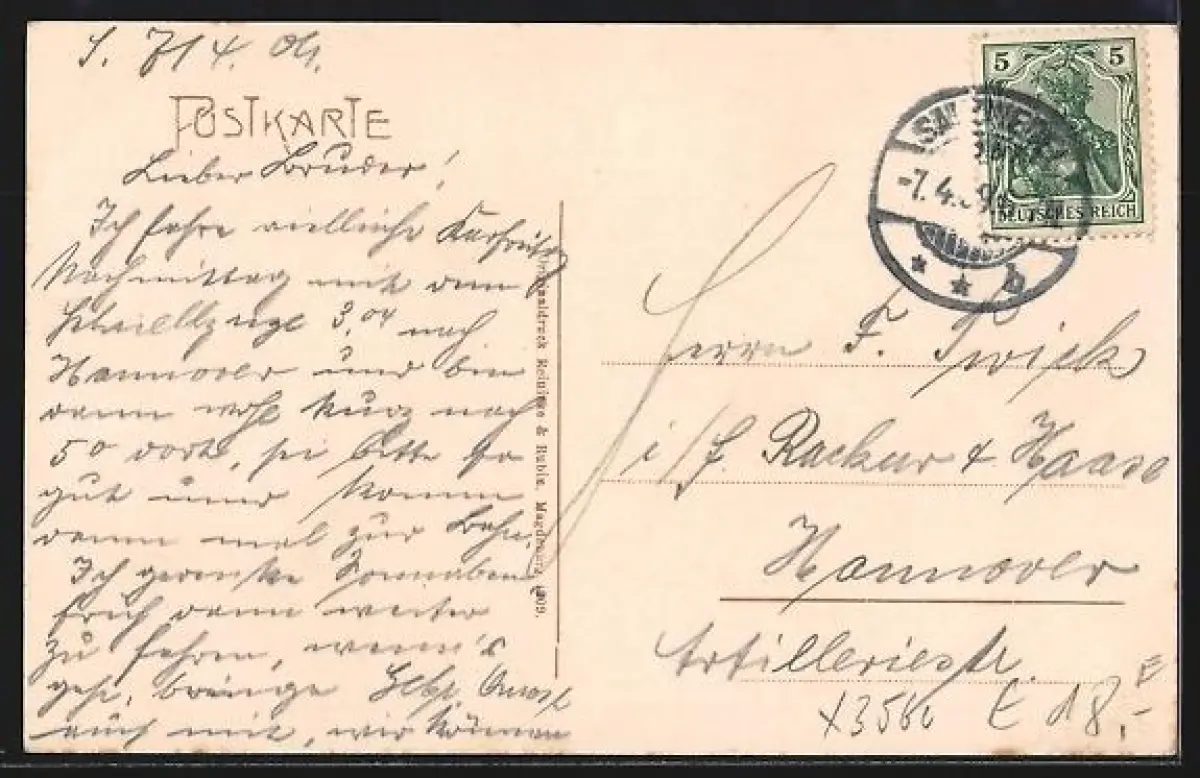 S. 7/4. 09.
POSTKARTE
Lieber Bruder!
Ich fahre vielleicht Karfreitag
Nachmittag mit dem
Schnellzuge 3.04 nach
Hannover und bin
dann wohl kurz nach
50 dort, sei bitte so
gut und komm
dann mal zur Bahn.
Ich gedenke Sonnabend
früh dann weiter
zu fahren, wenn's
geht, bringe
auch mit, wir können
Originaldruck Reinicke & Rubin, Magdeburg 1909.
5 5
DEUTSCHES REICH
SALZWEDEL
-7.4.09
* * b
Herrn F. Twick
i/f. & Haase
Hannover
Artilleriestr.
x3560 E 18,-